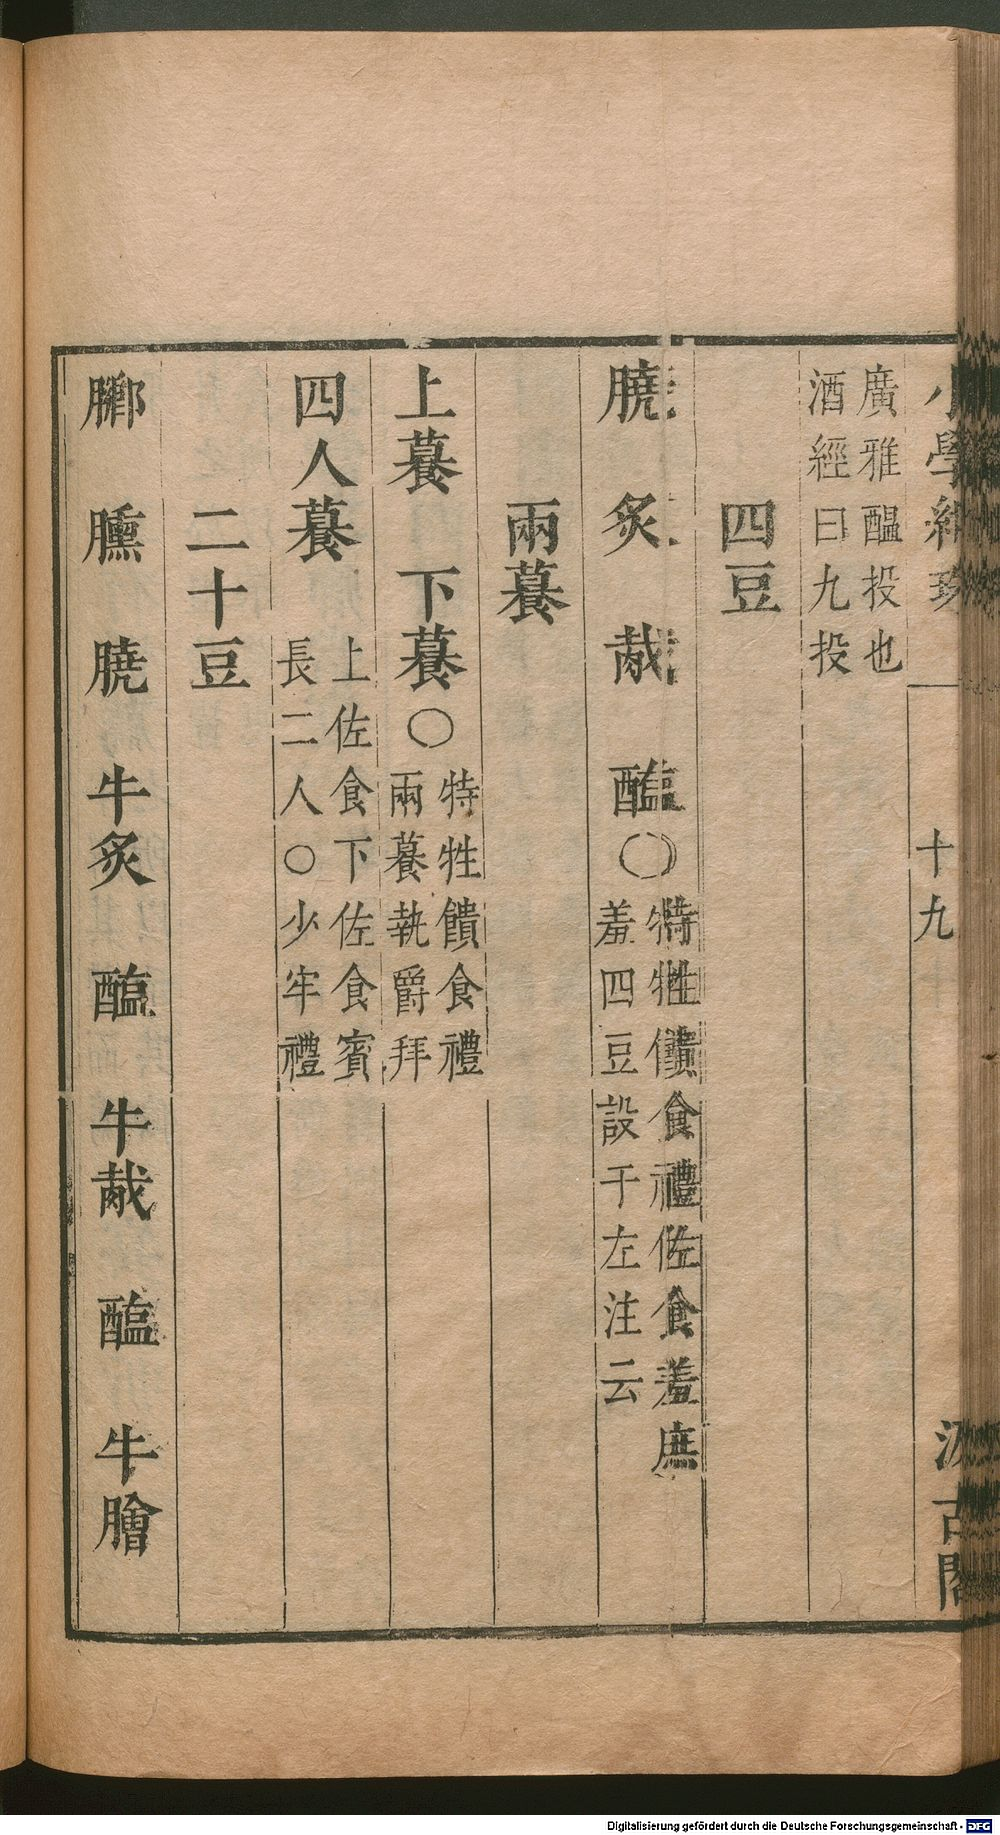 小學紺珠
十九
汲古閣
廣雅醞投也
酒經曰九投
四豆
膮 炙 胾 醢〇特牲饋食禮佐食羞庶
羞四豆設于左注云
兩養
上養 下養〇特牲饋食禮
兩養執爵拜
四人養 上佐食下佐食賓
長二人〇少牢禮
二十豆
膷 臐 膮 牛炙 醢 牛胾 醢 牛膾
Digitalisierung gefördert durch die Deutsche Forschungsgemeinschaft - DFG